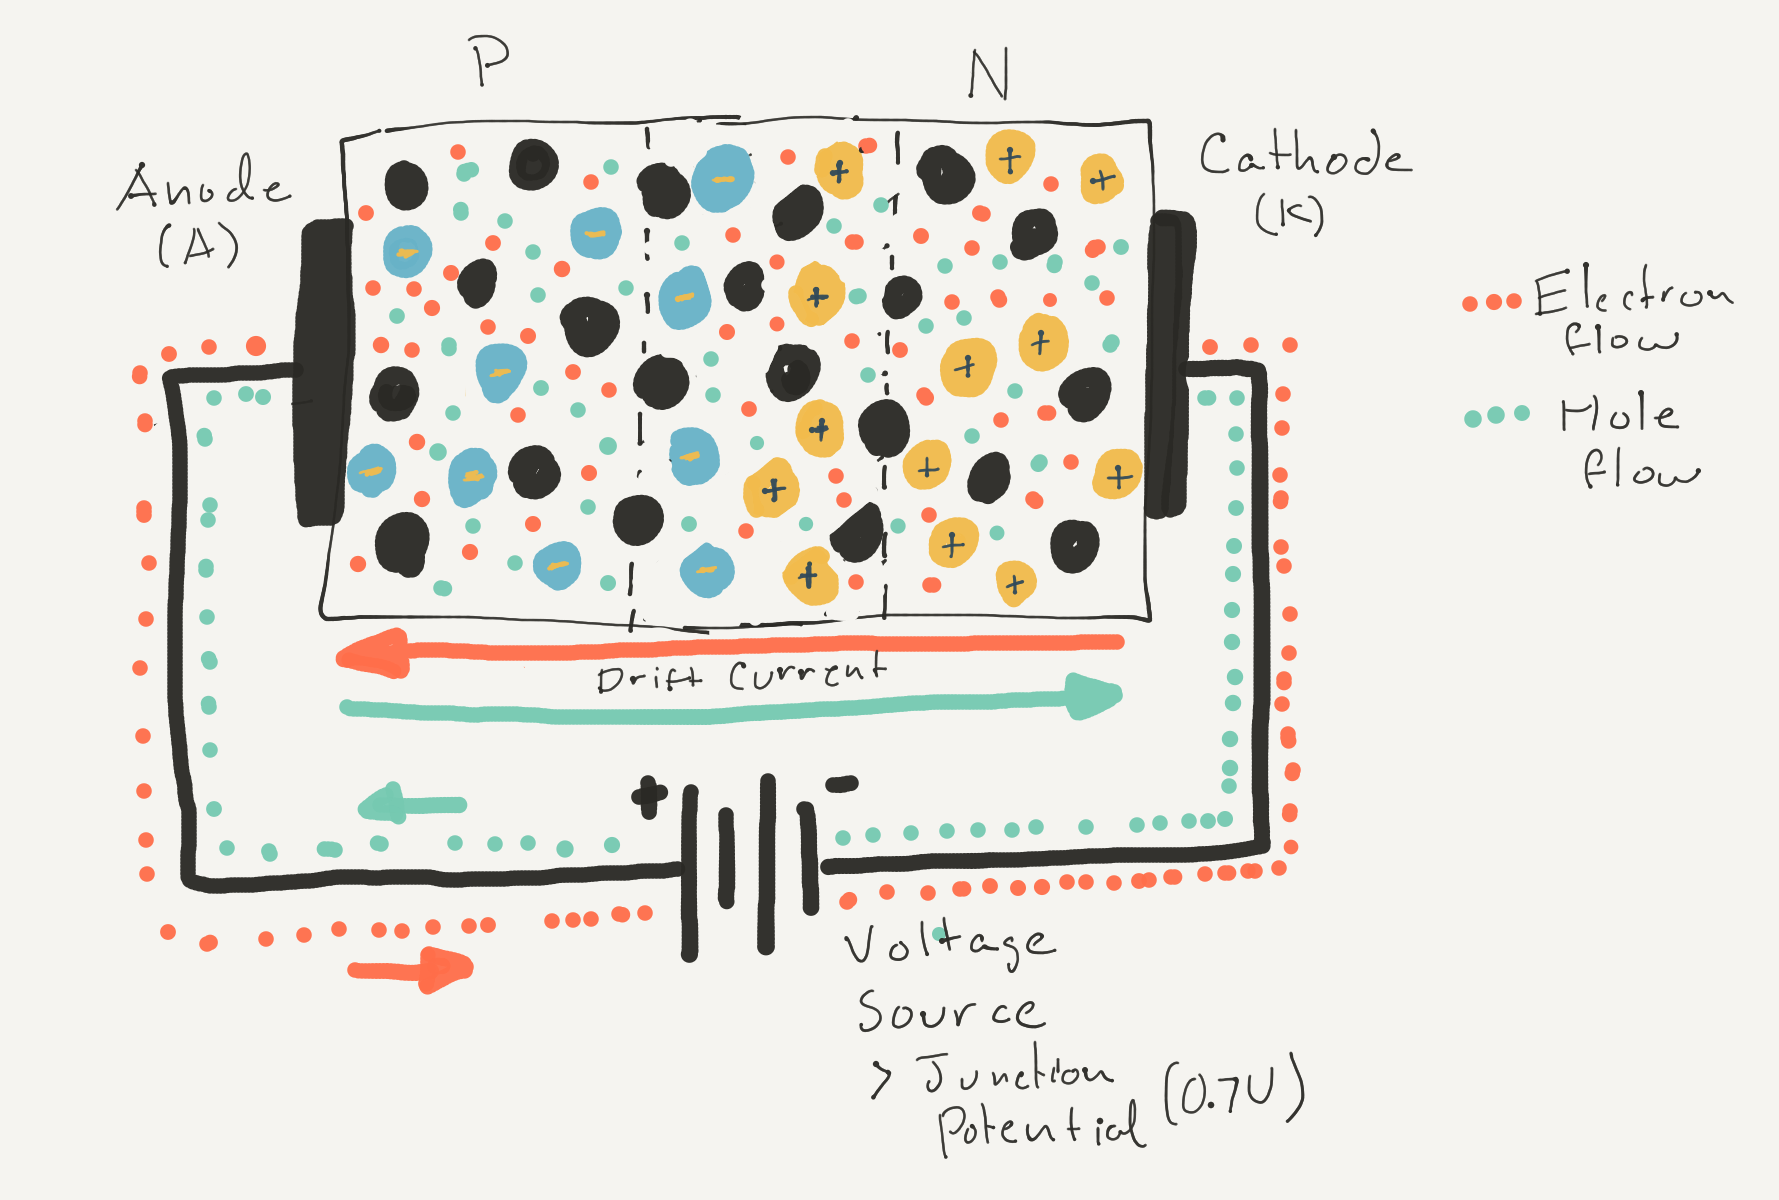 P
N
Anode
(A)
Cathode
(K)
Electron
flow
Hole
flow
Drift Current
+
-
Voltage
Source
> Junction
Potential (0.7V)